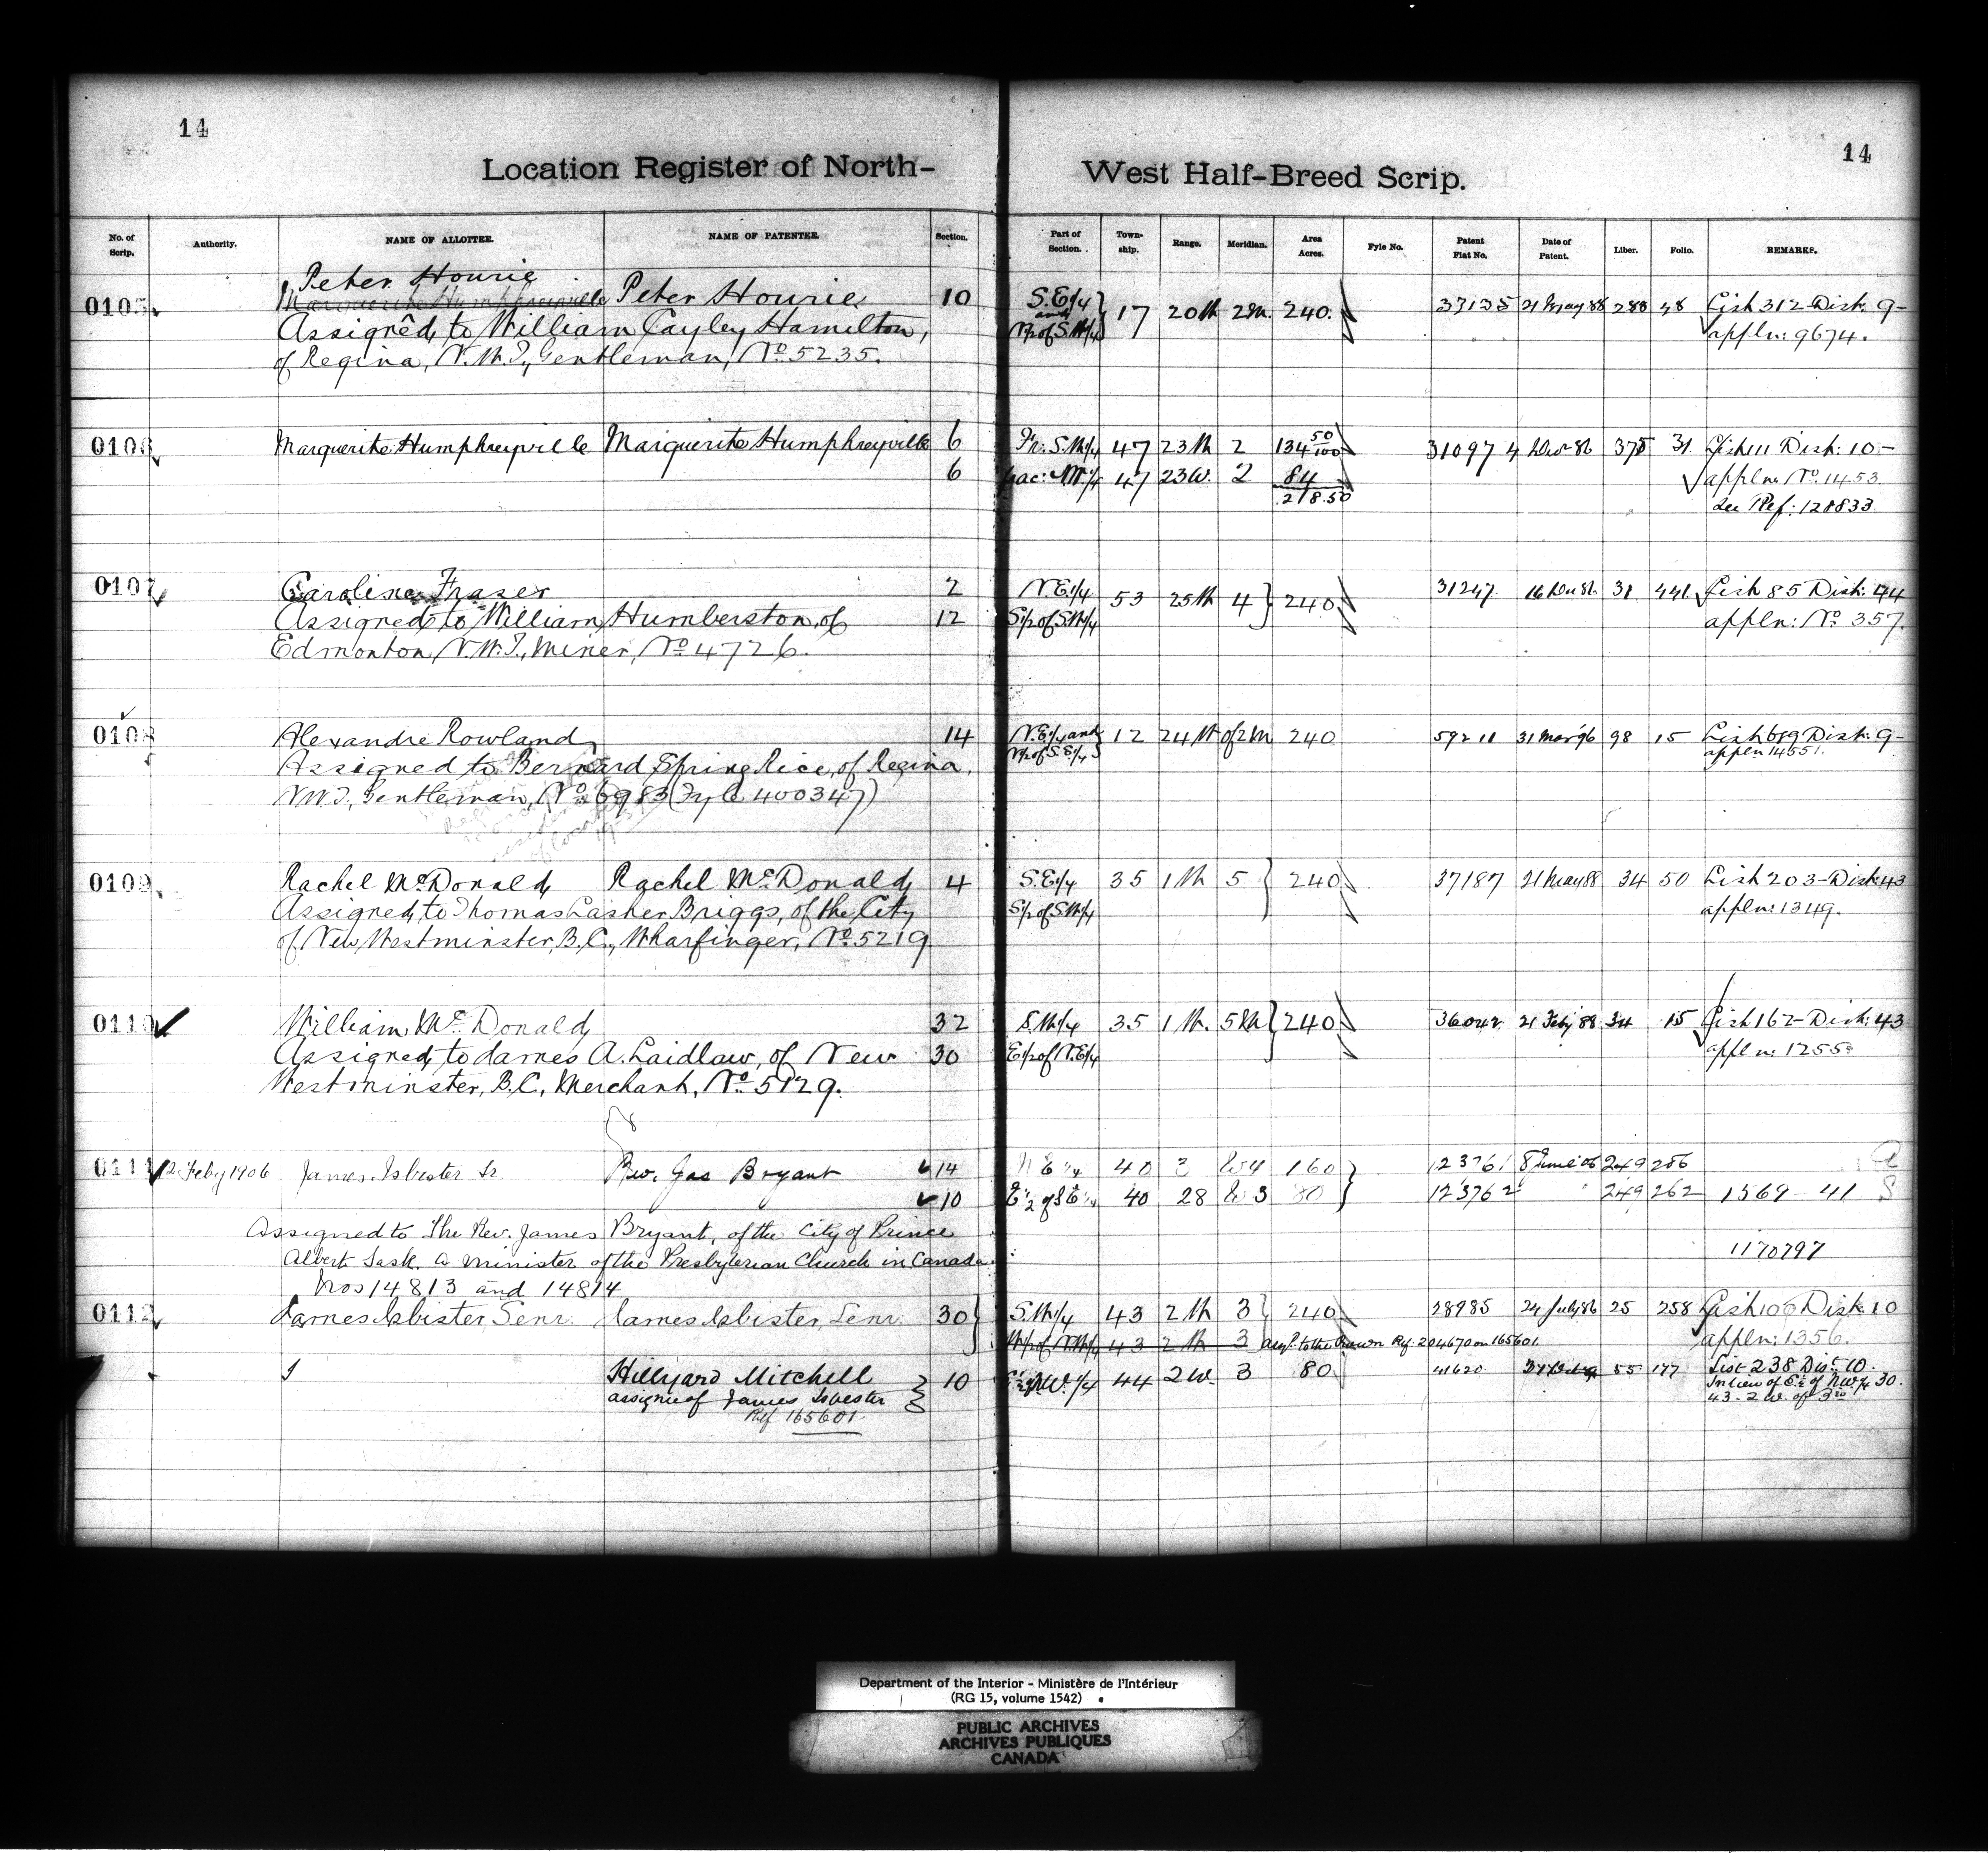 14
14
Location Register of North-
West Half-Breed Scrip.
No. of Scrip. Authority. NAME OF ALLOTTEE. NAME OF PATENTEE. Section. Part of Section. Township. Range. Meridian. Area Acres. Fyle No. Patent Fiat No. Date of Patent. Liber. Folio. REMARKS.
Peter Hourie
0105 Marguerite Humphreyville Peter Hourie 10 S.E1/4 and 17 20 W 2 M. 240. 37135 21 May 88 28 48 List 312 Dist: 9-
Assigned to William Cayley Hamilton, N1/2 of S.W1/4 appln: 9674.
of Regina, N.W.T., Gentleman, No. 5235.
0106 Marguerite Humphreyville Marguerite Humphreyville 6 Fr: S.W1/4 47 23 W 2 134 50/100 31097 4 Dec 86 31 List 11 Dist: 10-
6 frac: N.W.1/4 47 23W. 2 84 appln. No. 1453.
218.50 See Ref: 128833
0107 Caroline Fraser 2 N.E1/4 53 25 W 4 240 31247 16 Dec 86 31 441 List 85 Dist: 44
Assigned to William Humberston, of 12 S1/2 of S.W1/4 appln: No 357.
Edmonton, N.W.T., Miner, No 4726.
0108 Alexandre Rowland 14 N.E1/4 and 12 24 W of 2 M 240 59211 31 Mar 96 98 15 List 619 Dist: 9-
Assigned to Bernard Spring Rice, of Regina, N1/2 of S.E1/4 appln 14551.
N.W.T., Gentleman, No 6983 (Fyle 400347)
0109 Rachel McDonald Rachel McDonald 4 S.E1/4 35 1 W 5 240 37187 21 May 88 34 50 List 203 - Dist: 43
Assigned to Thomas Lasher Briggs, of the City S1/2 of S.W1/4 appln: 1349.
of New Westminster, B.C., Wharfinger, No 5219
0110 William McDonald 32 S.W1/4 35 1 W. 5 M 240 36042 21 Feby 88 34 15 List 162 - Dist: 43
Assigned to James A. Laidlaw, of New 30 E1/2 of N.E1/4 appln: 1255
Westminster, B.C., Merchant, No 5129.
0111 12 Feby 1906 James Isbister Sr. Rev. Jas Bryant 14 N E 1/4 40 W4 160 123761 8 June 06 249 286
10 E 1/2 of S E 1/4 40 28 W 3 80 123762 249 262 1569 - 41 S
Assigned to The Rev. James Bryant, of the City of Prince
Albert Sask. a minister of the Presbyterian Church in Canada. 1170797
Nos 14813 and 14814
0112 James Isbister Senr. James Isbister, Senr. 30 S.W1/4 43 2 W 3 240 28985 24 July 86 25 258 List 100 Dist: 10
W1/2 of N.W1/4 43 2 W 3 to the Crown Ref: 204670 on 165601. appln: 1356.
Hillyard Mitchell 10 N.W.1/4 44 2 W. 3 80 41620 55 177 List 238 Dist 10.
assignee of James Isbester In lieu of E 1/2 of N.W1/4 30.
Ref 165601 43 - 2 W. of 3rd
Department of the Interior - Ministère de l'Intérieur
(RG 15, volume 1542)
PUBLIC ARCHIVES
ARCHIVES PUBLIQUES
CANADA